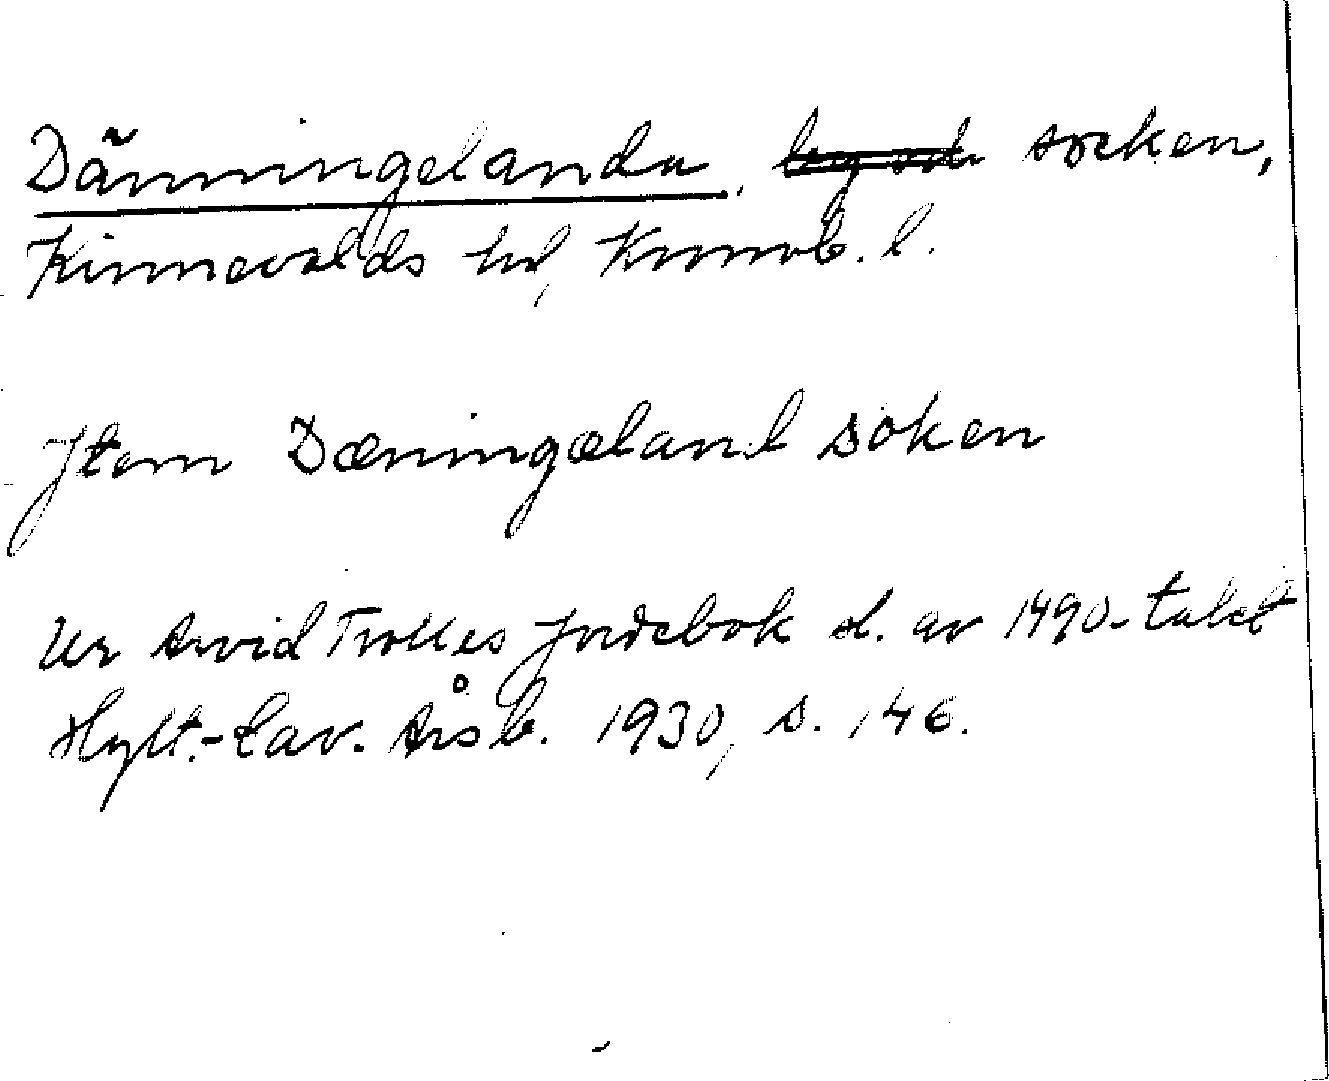 Dänningelanda, bygd socken,
Kinnevalds hd, Kronob. l.
Item Dæningæland soken
Ur Arvid Trolles jordebok sl. av 1490-talet
Hylt.-Cav. Årsb. 1930, s. 146.